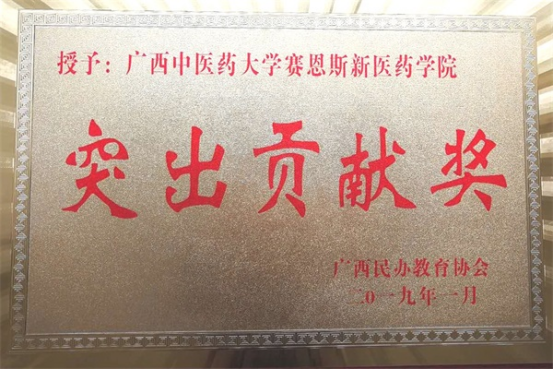 授予：广西中医药大学赛恩斯新医药学院
突出贡献奖
广西民办教育协会
二0一九年一月